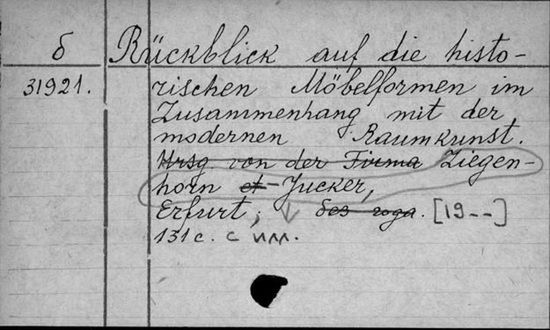 б Rückblick auf die histo-
31921. rischen Möbelformen im
Zusammenhang mit der
modernen Raumkunst.
Hrsg von der Firma Ziegen-
horn et Jucker,
Erfurt, без года. [19--]
131 с. с илл.